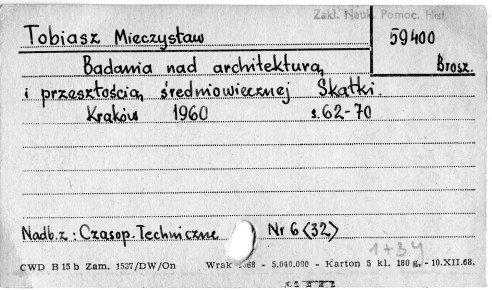 Zakł. Nauk. Pomoc. Hist.
Tobiasz Mieczysław
59400
Brosz.
Badania nad architekturą
i przeszłością średniowiecznej Skałki.
Kraków 1960 s.62-70
Nadb.z: Czasop. Techniczne Nr 6 <32>
1+34
CWD B 15 b Zam. 1537/DW/On Wrak 1968 - 5.040.000 - Karton 5 kl. 180 g. - 10.XII.68.